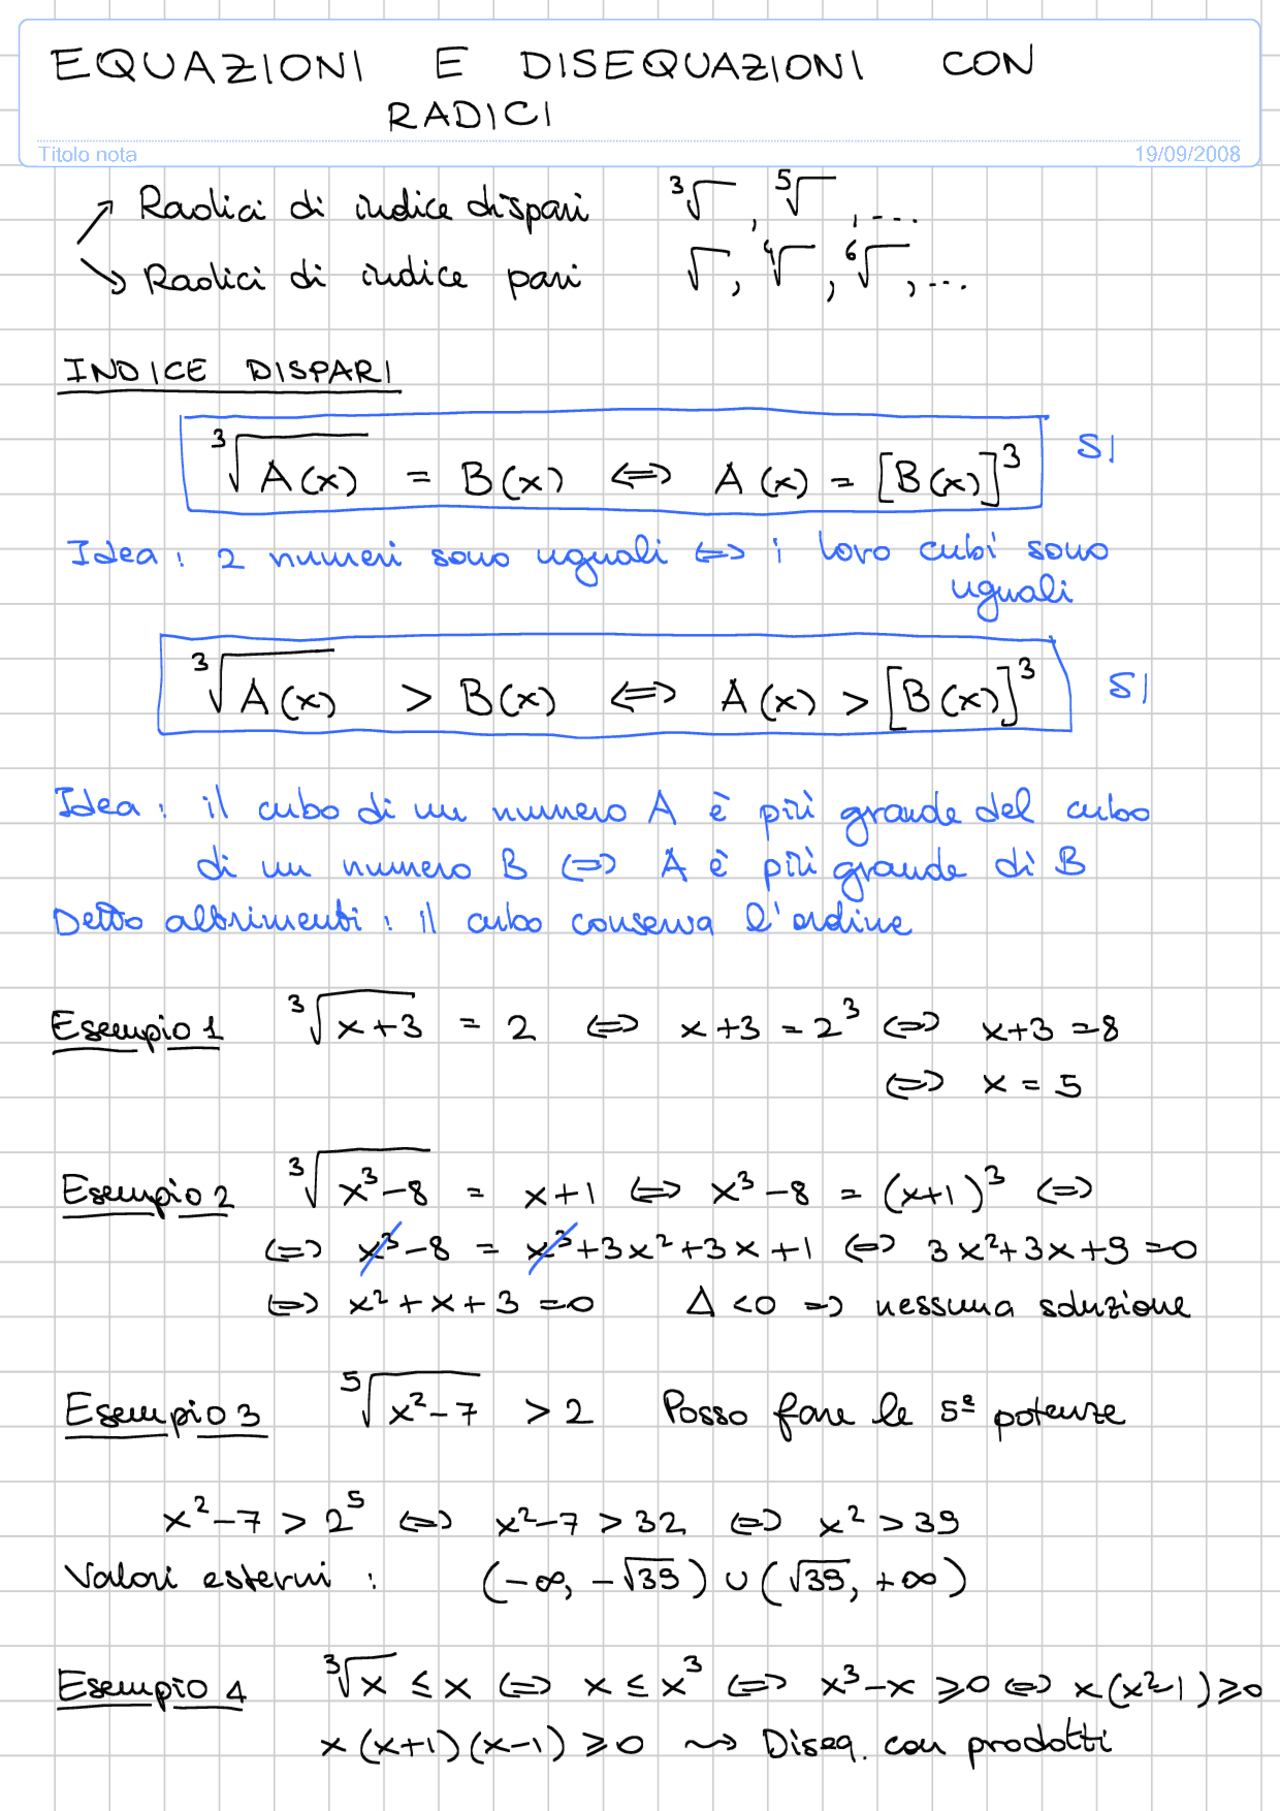 EQUAZIONI E DISEQUAZIONI CON
RADICI
Titolo nota 19/09/2008
↗ Radici di indice dispari ∛ , ⁵√ , ...
↘ Radici di indice pari √ , ⁴√ , ⁶√ , ...
INDICE DISPARI
∛A(x) = B(x) ⇔ A(x) = [B(x)]³ SI
Idea: 2 numeri sono uguali ⇔ i loro cubi sono
uguali
∛A(x) > B(x) ⇔ A(x) > [B(x)]³ SI
Idea: il cubo di un numero A è più grande del cubo
di un numero B ⇔ A è più grande di B
Detto altrimenti: il cubo conserva l'ordine
Esempio 1 ∛(x+3) = 2 ⇔ x+3 = 2³ ⇔ x+3 = 8
⇔ x = 5
Esempio 2 ∛(x³-8) = x+1 ⇔ x³-8 = (x+1)³ ⇔
⇔ x³-8 = x³+3x²+3x+1 ⇔ 3x²+3x+9=0
⇔ x²+x+3=0 Δ<0 ⇒ nessuna soluzione
Esempio 3 ⁵√(x²-7) > 2 Posso fare le 5ᵉ potenze
x²-7 > 2⁵ ⇔ x²-7 > 32 ⇔ x² > 39
Valori esterni : (-∞, -√39) ∪ (√39, +∞)
Esempio 4 ∛x ≤ x ⇔ x ≤ x³ ⇔ x³-x ≥ 0 ⇔ x(x²-1) ≥ 0
x(x+1)(x-1) ≥ 0 ⇝ Diseq. con prodotti